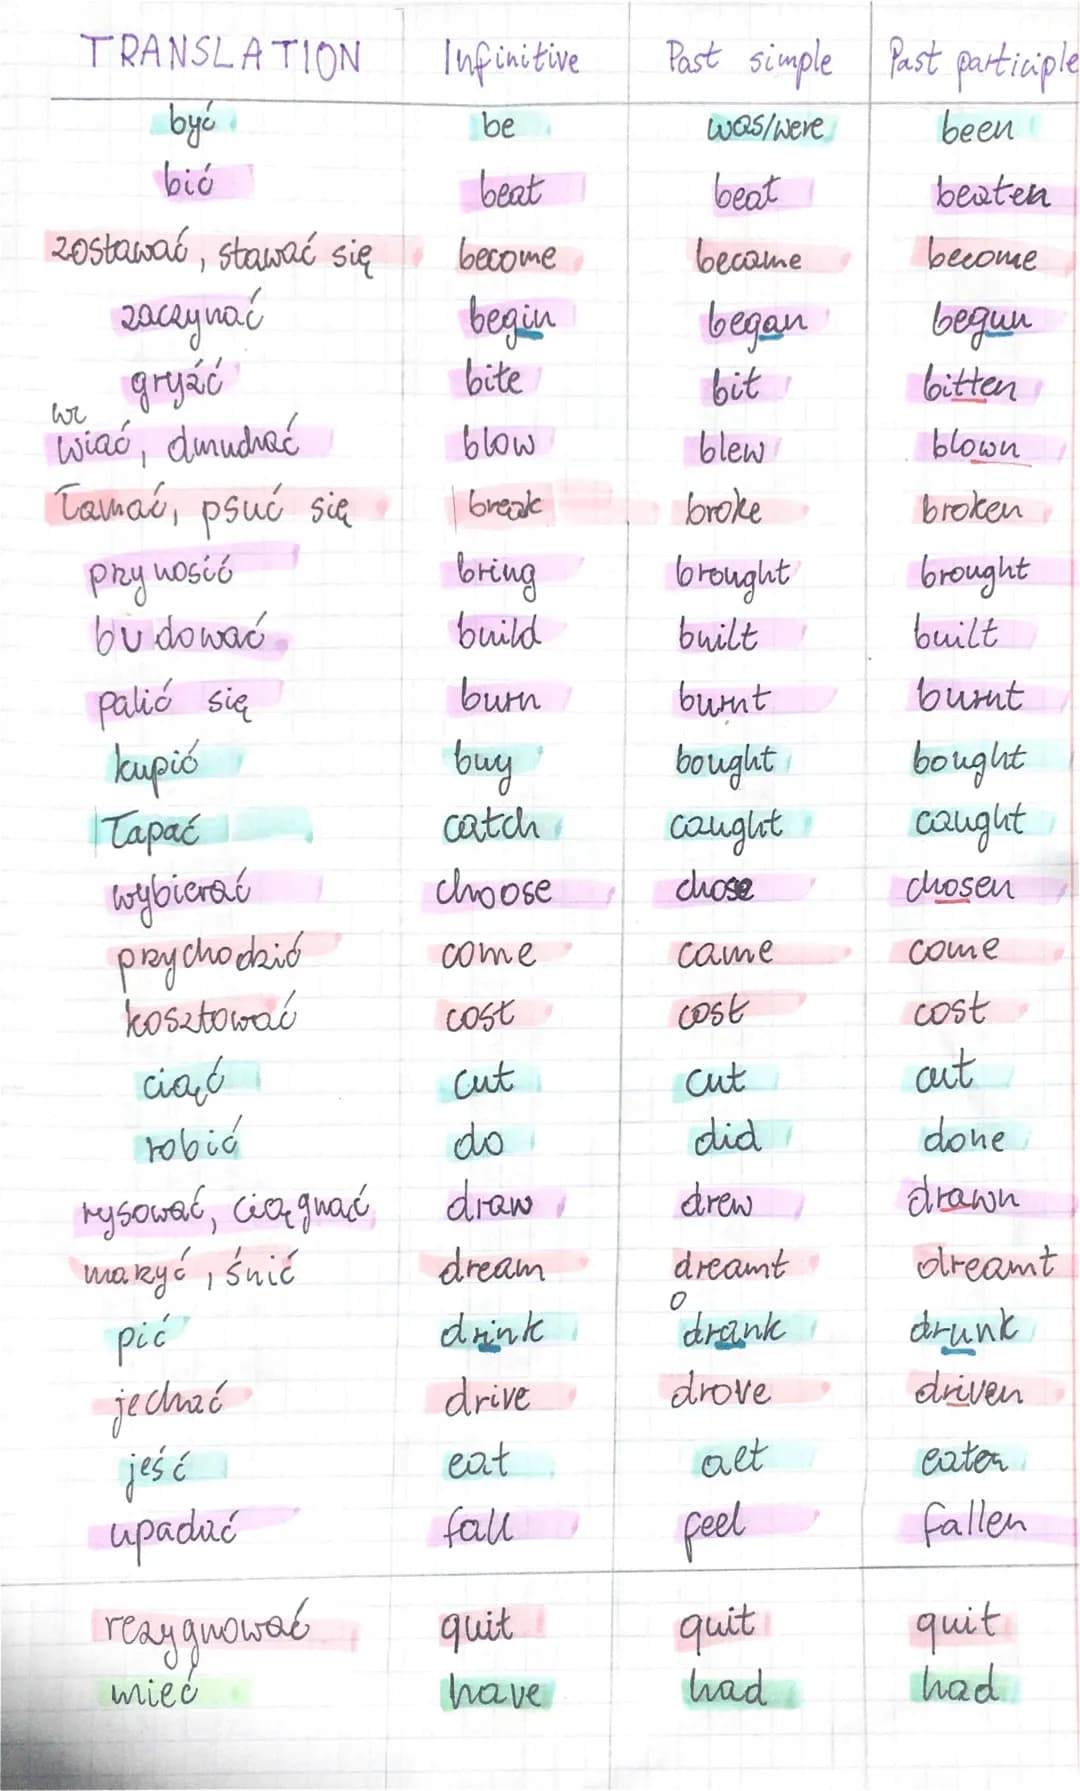 TRANSLATION Infinitive Past simple Past participle
być be was/were been
bić beat beat beaten
zostawać, stawać się become became become
zaczynać begin began begun
gryźć bite bit bitten
wr
wiać, dmuchać blow blew blown
łamać, psuć się break broke broken
przynosić bring brought brought
budować build built built
palić się burn burnt burnt
kupić buy bought bought
łapać catch caught caught
wybierać choose chose chosen
przychodzić come came come
kosztować cost cost cost
ciąć cut cut cut
robić do did done
rysować, ciągnąć draw drew drawn
marzyć, śnić dream dreamt dreamt
o
pić drink drank drunk
jechać drive drove driven
jeść eat aet eaten
upadać fall feel fallen
rezygnować quit quit quit
mieć have had had